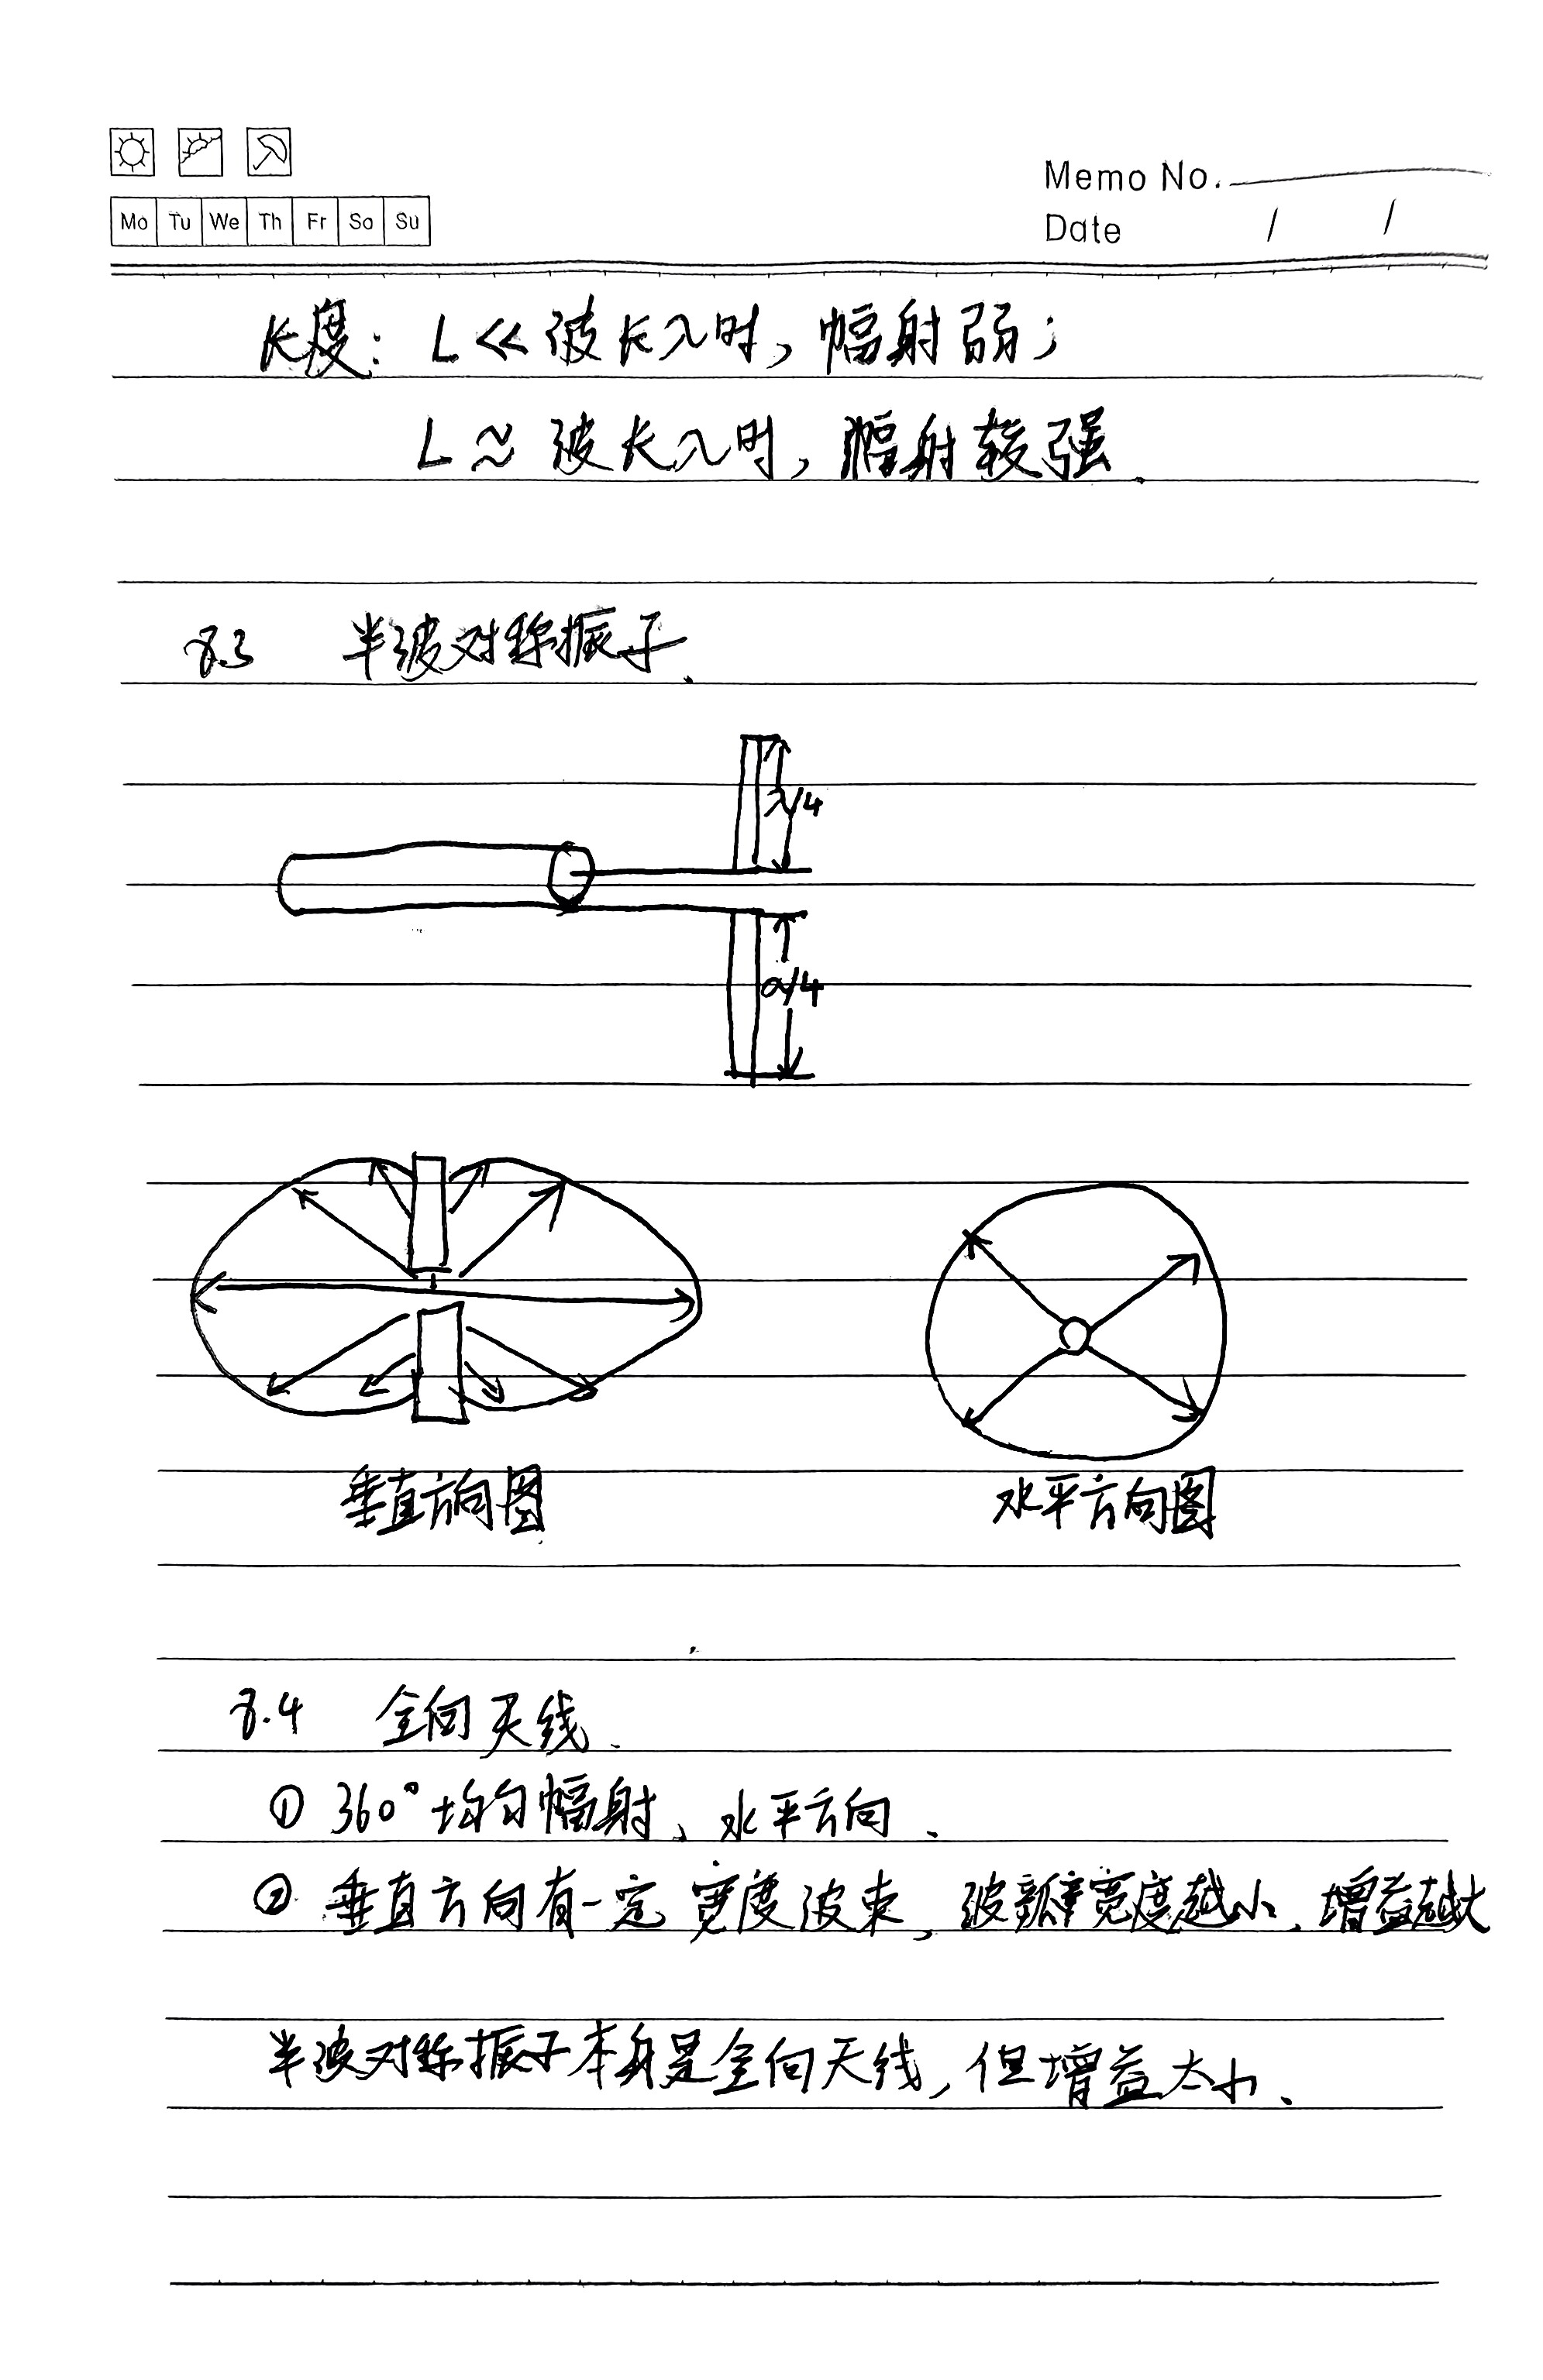 Memo No.
Mo Tu We Th Fr Sa Su
Date / /
长度: L << 波长λ时, 幅射弱;
L ≈ 波长λ时, 幅射较强.
8.3 半波对称振子.
λ/4
λ/4
垂直方向图
水平方向图
8.4 全向天线.
① 360°均匀幅射、水平方向.
② 垂直方向有一定宽度波束, 波瓣宽度越小、增益越大
半波对称振子本身是全向天线, 但增益太小.